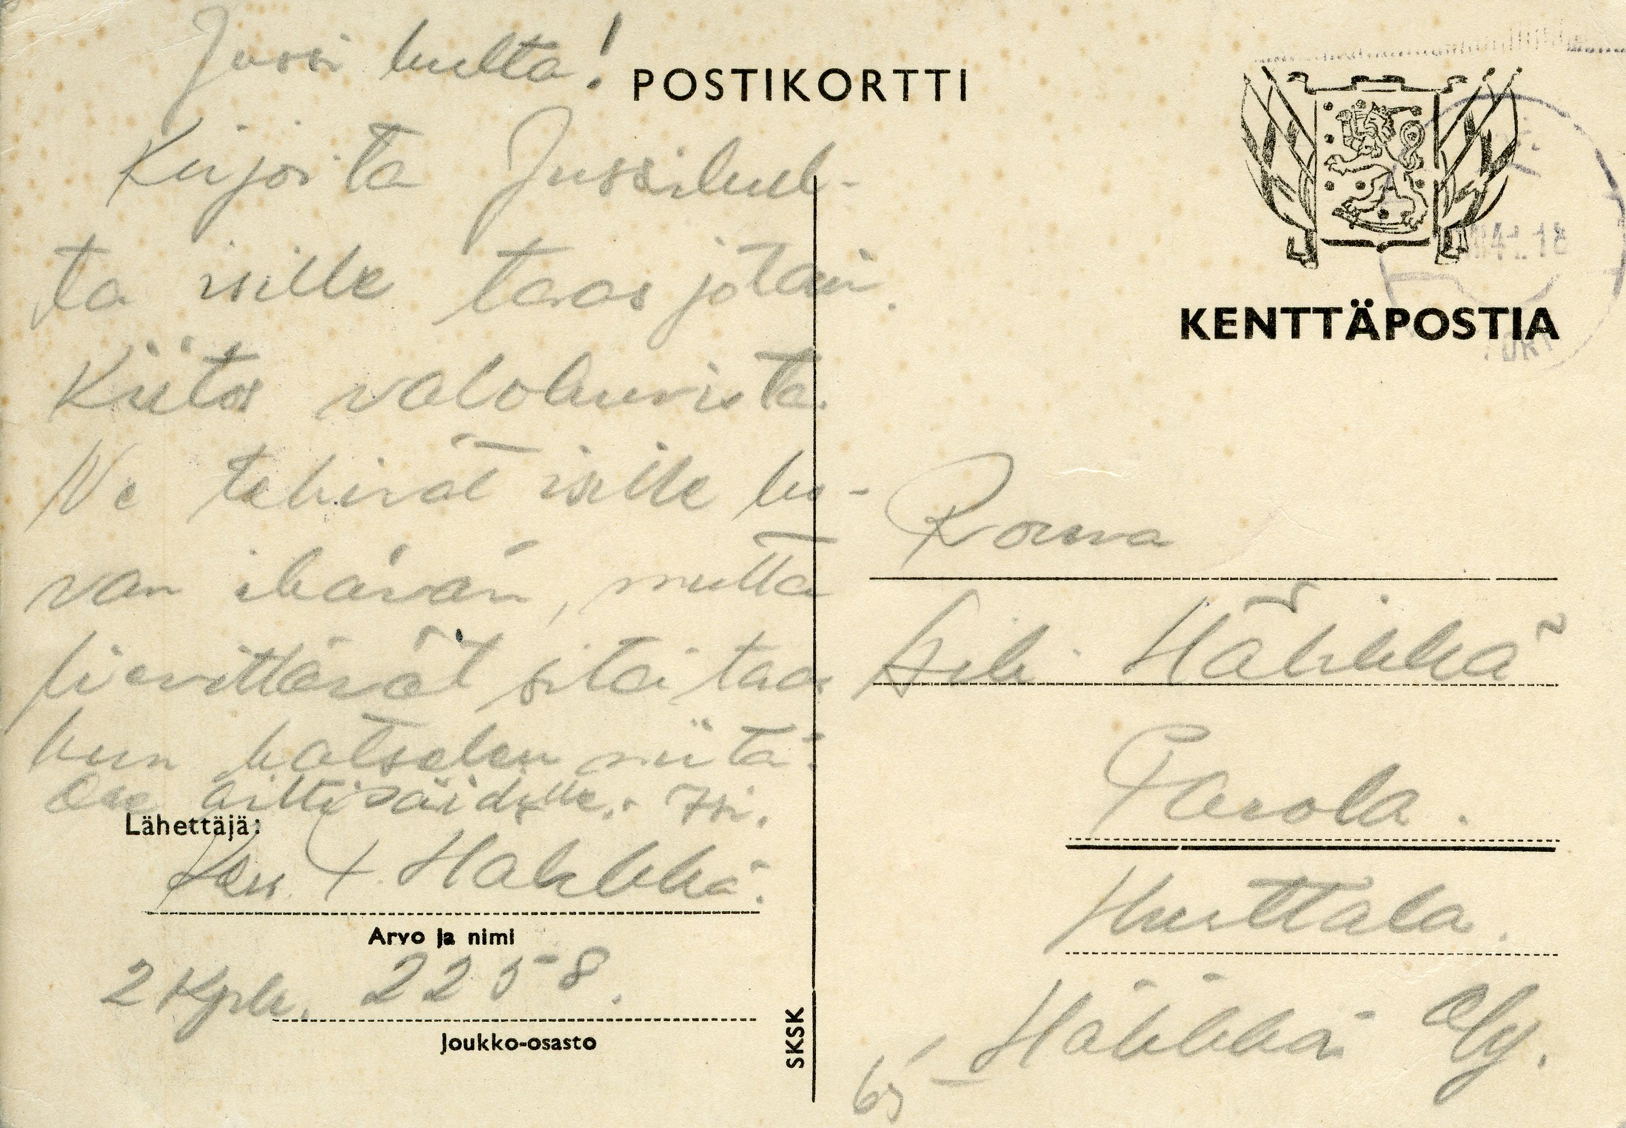 Jussi kulta!
POSTIKORTTI
Kirjoita Jussikul-
ta isille taas jotain.
Kiitos valokuvista.
Ne tekivät isille ko-
van ikävän, mutta
lievittävät sitä taas
kun katselen niitä.
Ole äitti Isi.
Lähettäjä:
Hakkka.
Arvo ja nimi
2 Kplk. 2258.
Joukko-osasto
SKSK
41.18
KENTTÄPOSTIA
Rouva
Häkkkä
Parola.
Hurttala.
Häkkkä Oy.
65